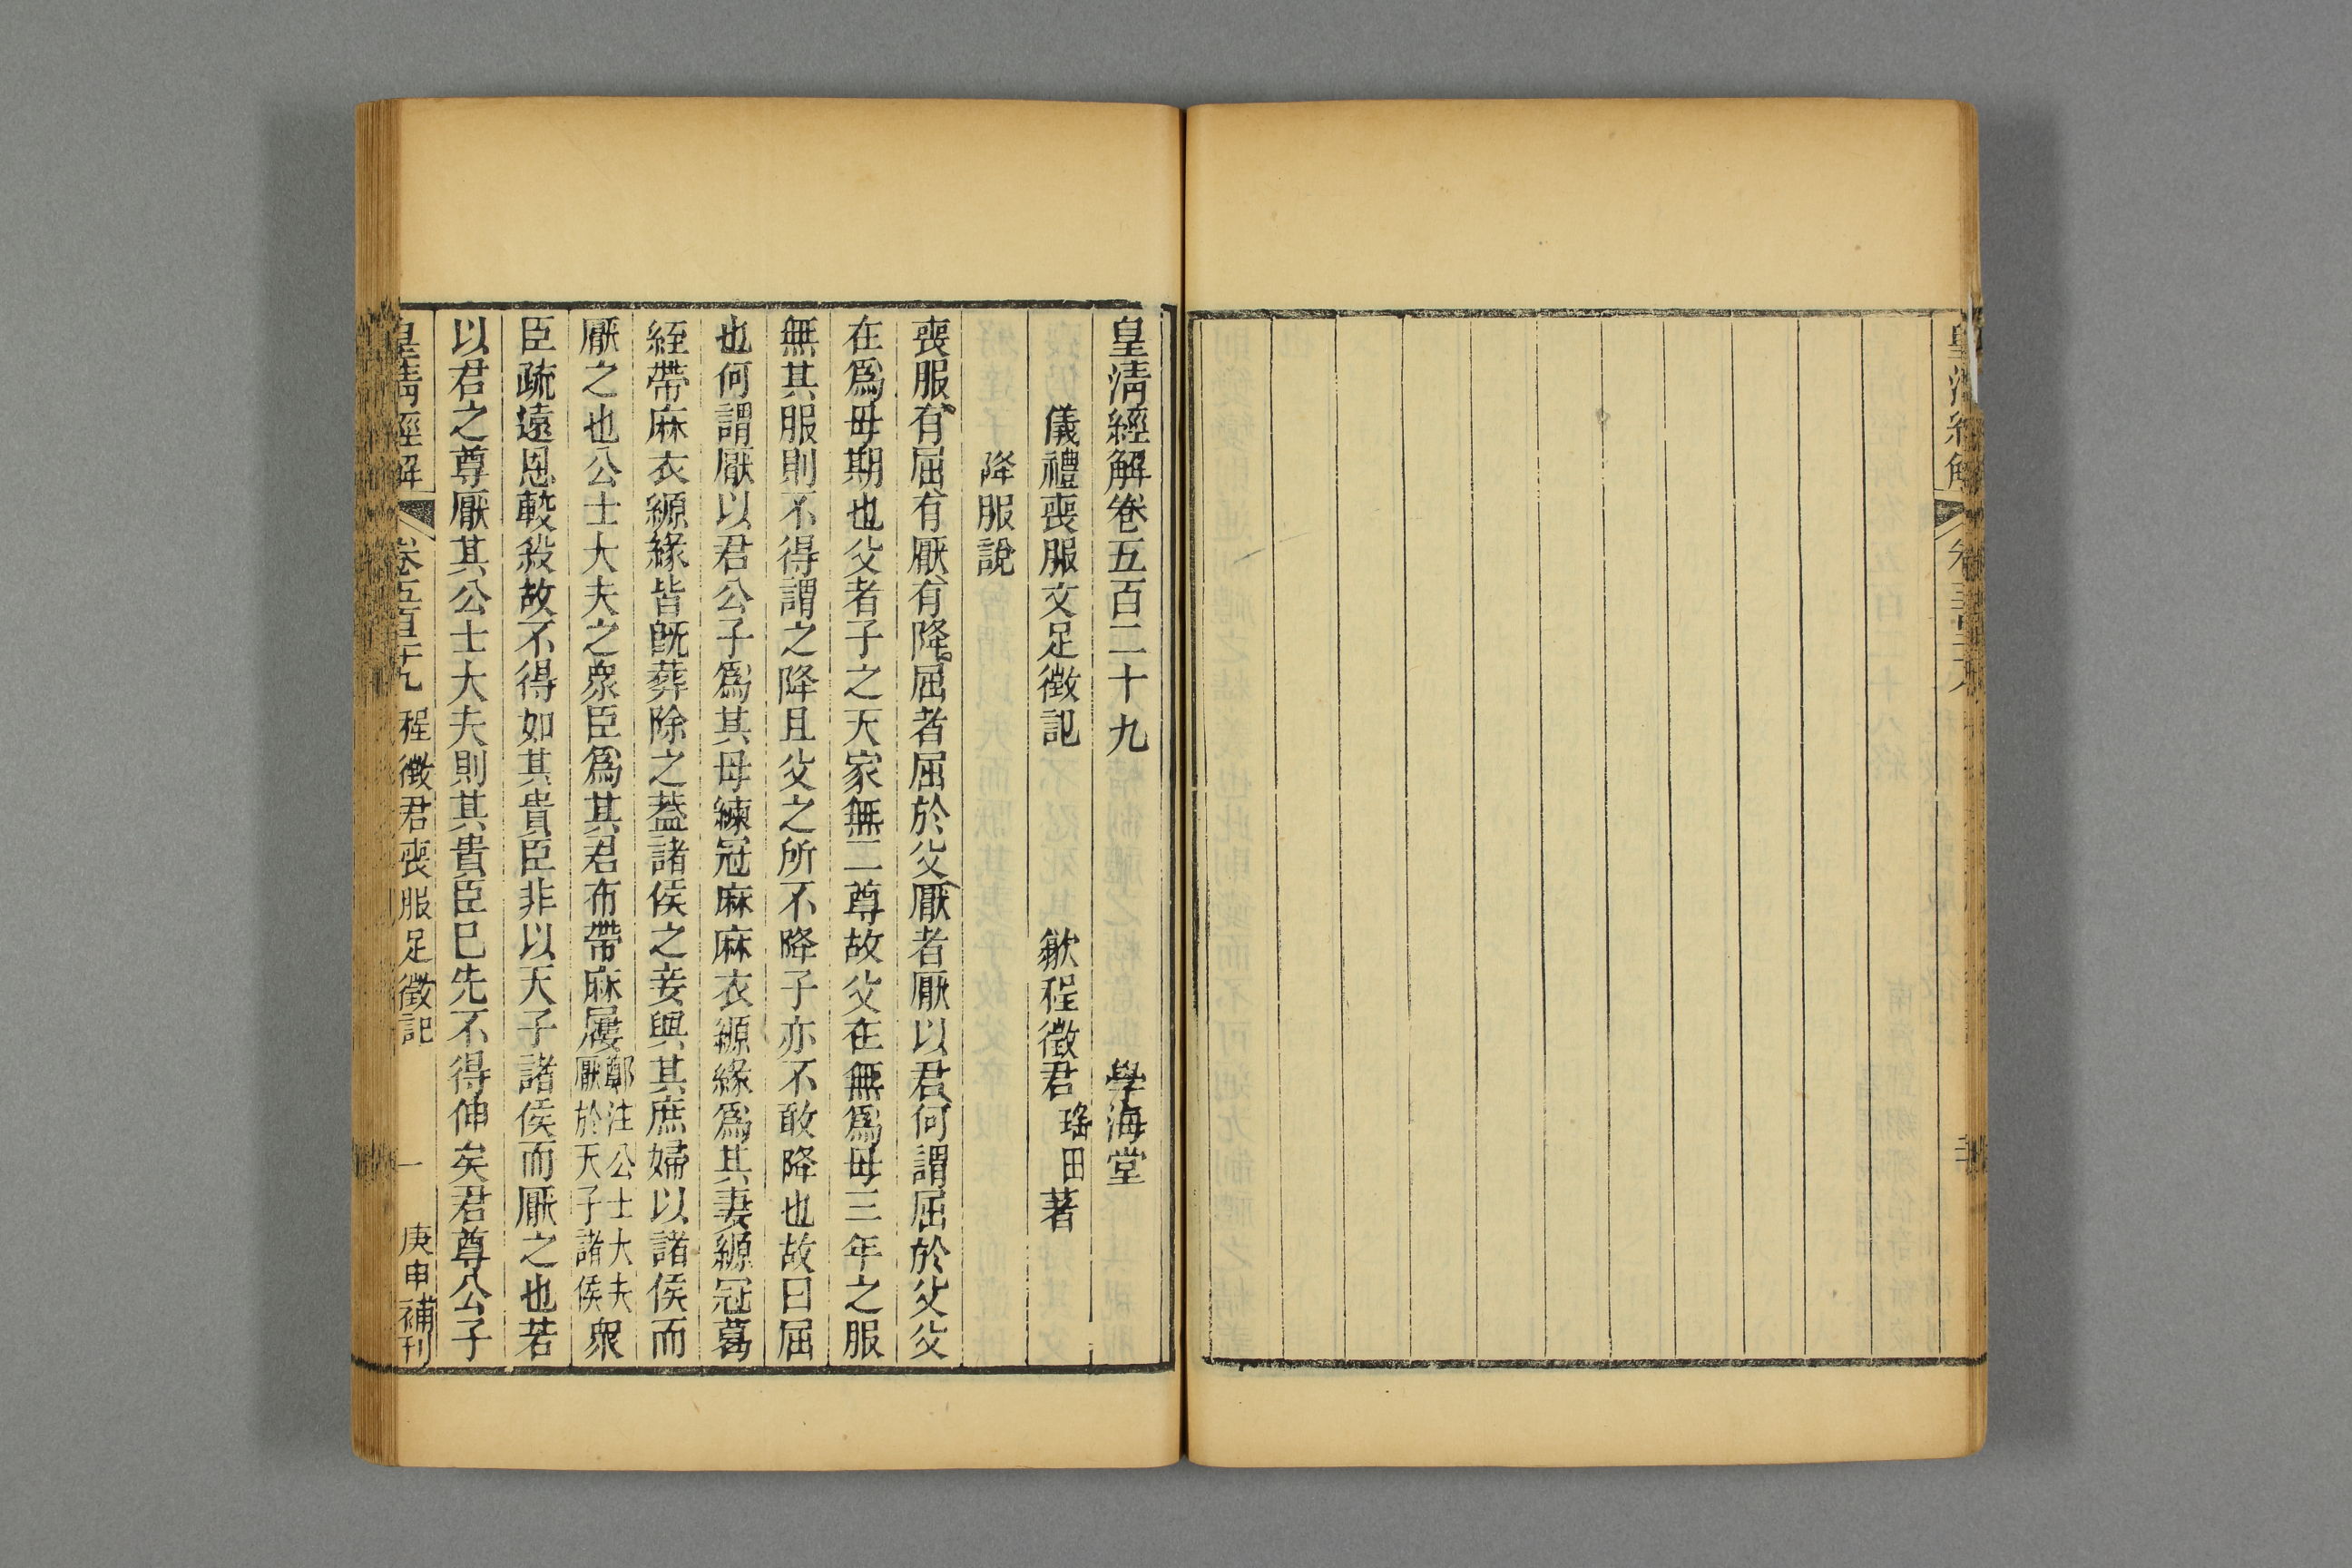 皇清經解卷五百二十九 學海堂
儀禮喪服文足徵記 歙程徵君瑤田著
降服說
喪服有屈有厭有降屈者屈於父厭者厭以君何謂屈於父父
在爲母期也父者子之天家無二尊故父在無爲母三年之服
無其服則不得謂之降且父之所不降子亦不敢降也故曰屈
也何謂厭以君公子爲其母練冠麻麻衣縓緣爲其妻縓冠葛
絰帶麻衣縓緣皆旣葬除之蓋諸侯之妾與其庶婦以諸侯而
厭之也公士大夫之衆臣爲其君布帶麻屨鄭注公士大夫厭於天子諸侯衆
臣疏遠恩輕殺故不得如其貴臣非以天子諸侯而厭之也若
以君之尊厭其公士大夫則其貴臣已先不得伸矣君尊公子
皇清經解 卷五百二十九 程徵君喪服足徵記 一 庚申補刊